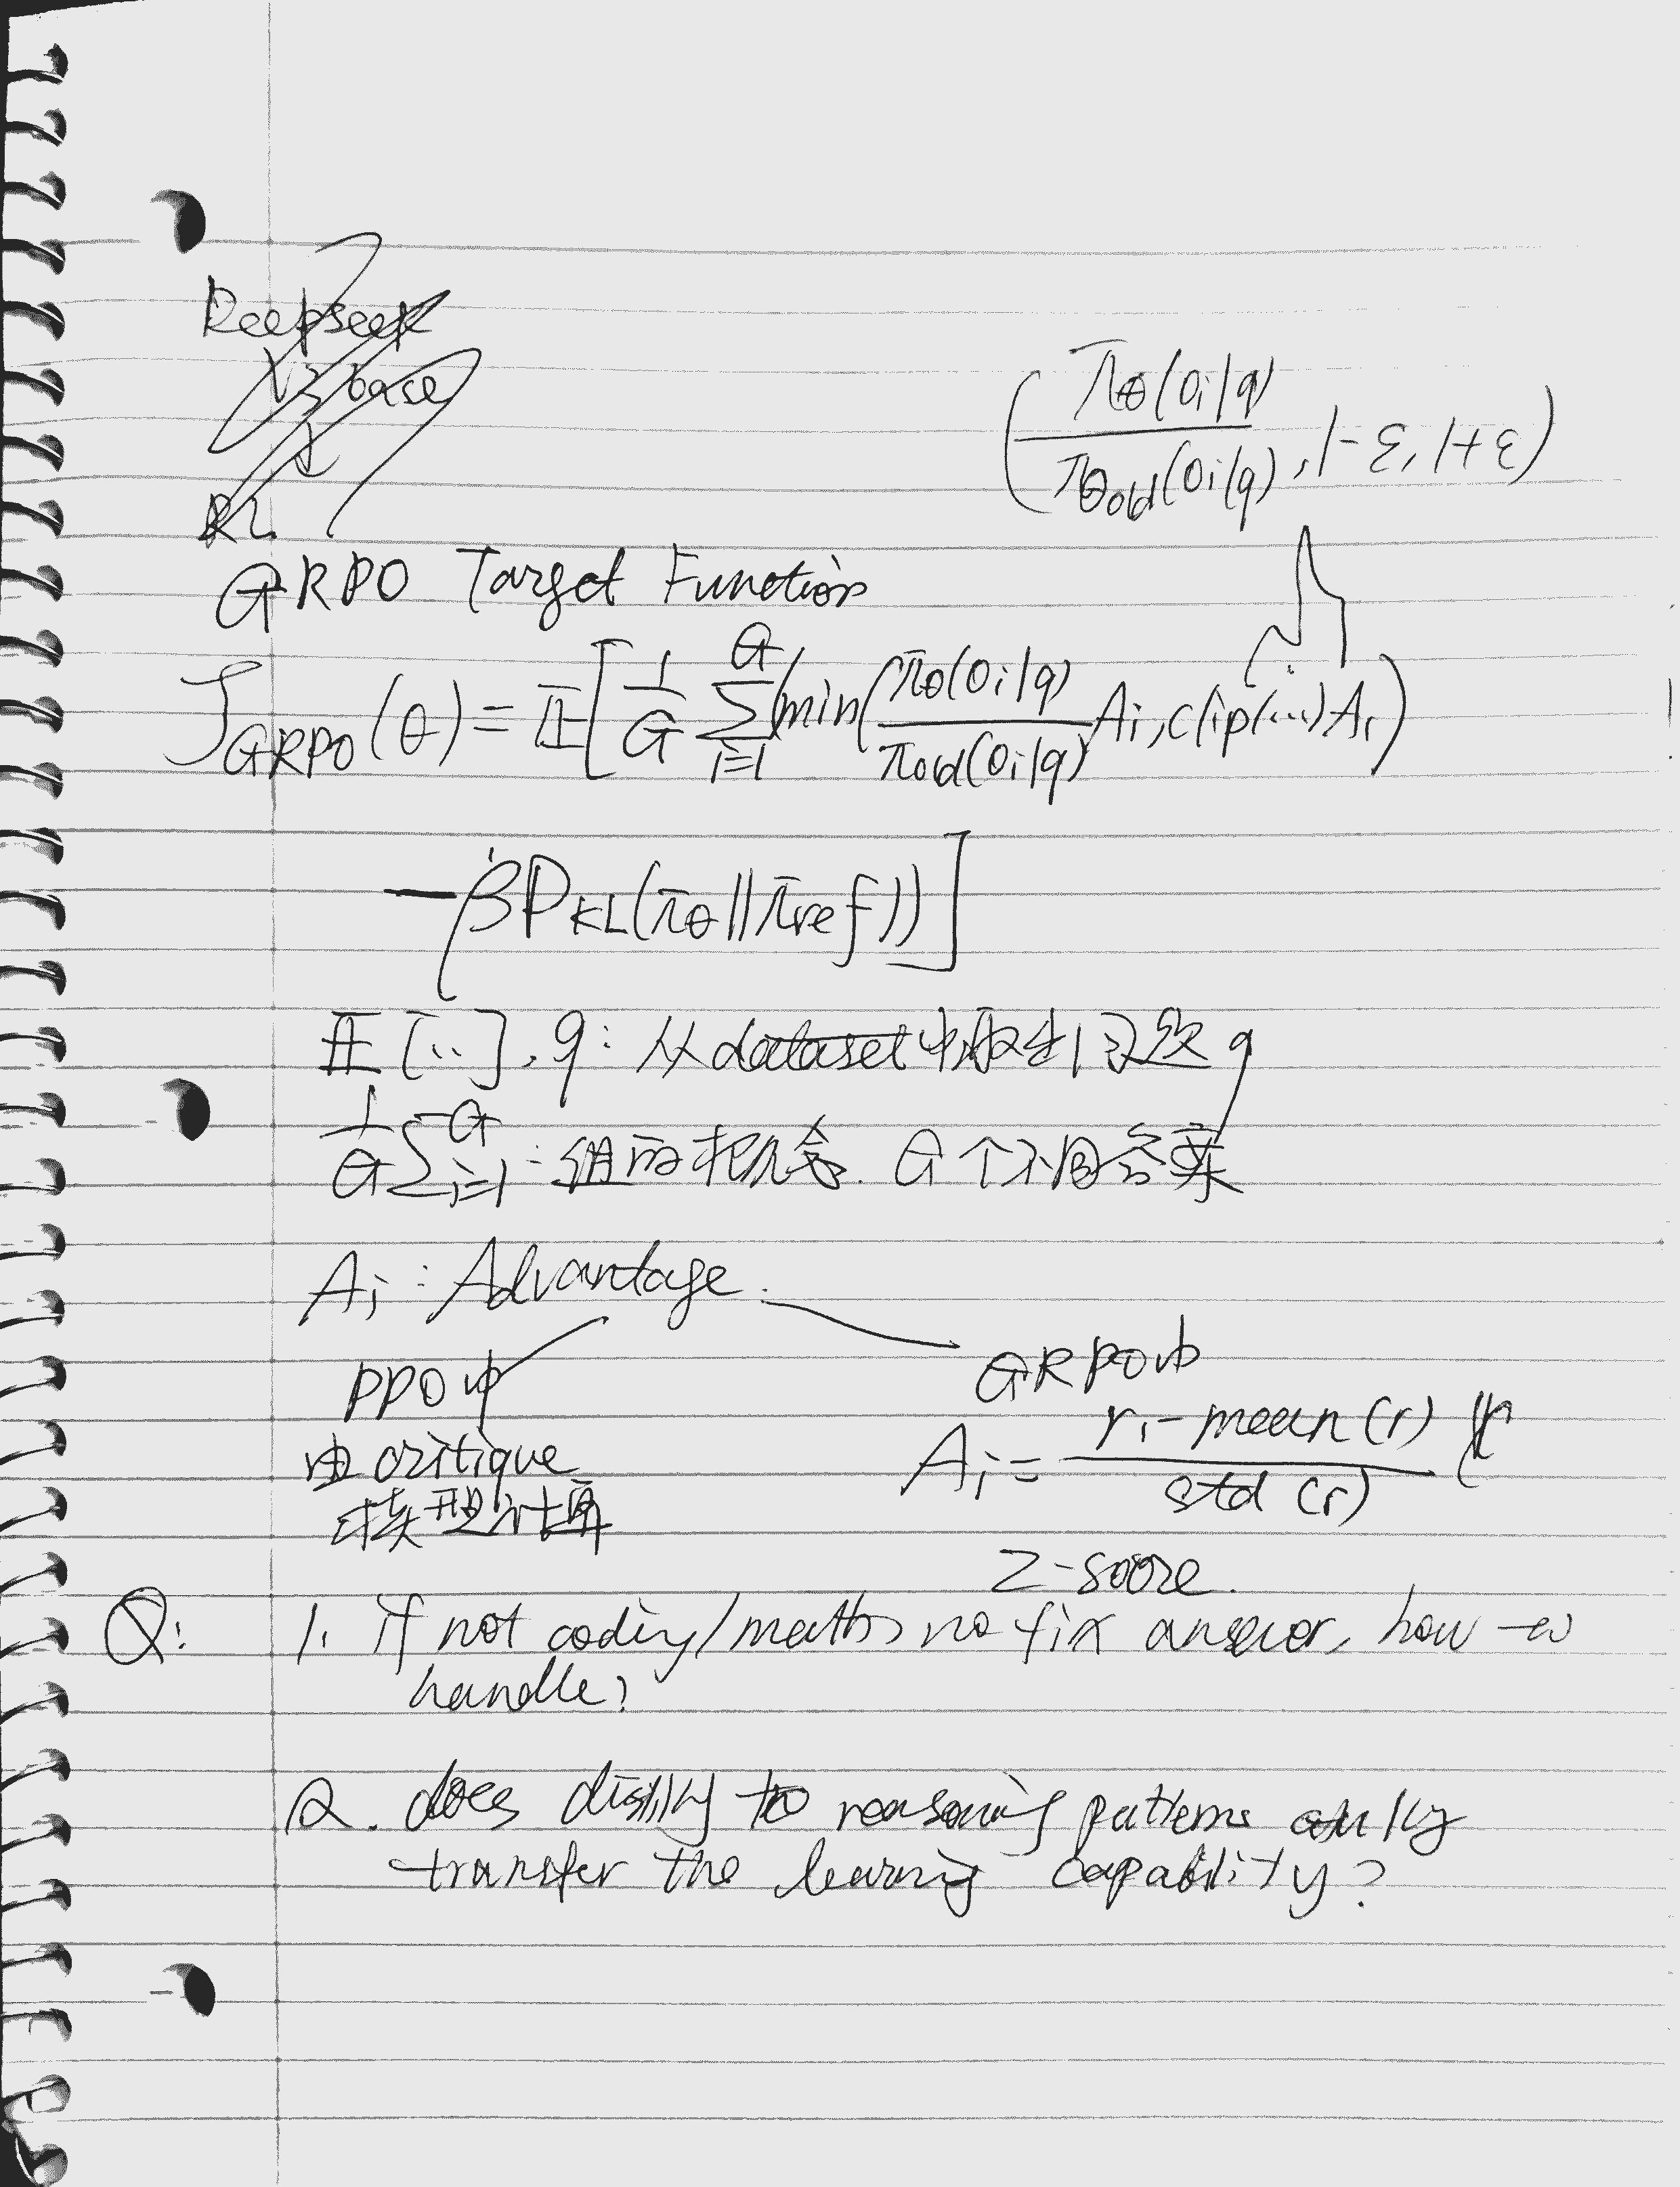 Deepseek
V3 base
↓
RL
(πθ(oi|q) / πθold(oi|q), 1-ε, 1+ε)
GRPO Target Function
J_GRPO(θ) = E[1/G Σ_{i=1}^{G} (min(πθ(oi|q) / πold(oi|q) Ai, clip(...)Ai)
-βD_KL(πθ||πref))]
E[..], q: 从dataset中取出1问题q
1/G Σ_{i=1}^{G}: 组的概念. G个不同答案
Ai: Advantage.
PPO中
由critique
模型计算
GRPO中
Ai = (ri - mean(r)) / std(r)
Z-score.
Q: 1. if not coding/math, no fix answer, how to
handle?
2. does distilling to reasoning patterns
transfer the learning capability?